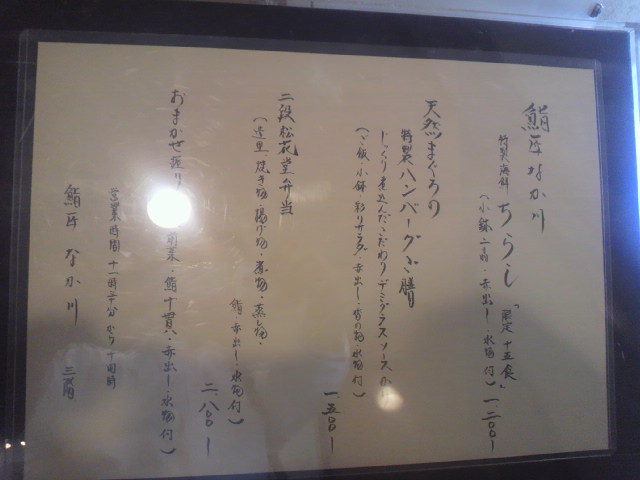 鮨匠 なか川
特製海鮮 ちらし 「限定 十五食」
(小鉢二種・赤出し・水物付) 一、二〇〇ー
天然まぐろの
特製ハンバーグ御膳
じっくり煮込んだこだわりデミグラスソースの
(ご飯 小鉢 彩りサラダ・赤出し・香の物・水物付)
一、五〇〇ー
二段松花堂弁当
(造里・焼き物・揚げ物・煮物・蒸し物・
鮨・赤出し・水物付)
二、八〇〇ー
おまかせ握り
前菜・鮨十貫・赤出し・水物付)
営業時間 十一時三十分から十四時
鮨匠 なか川 三階